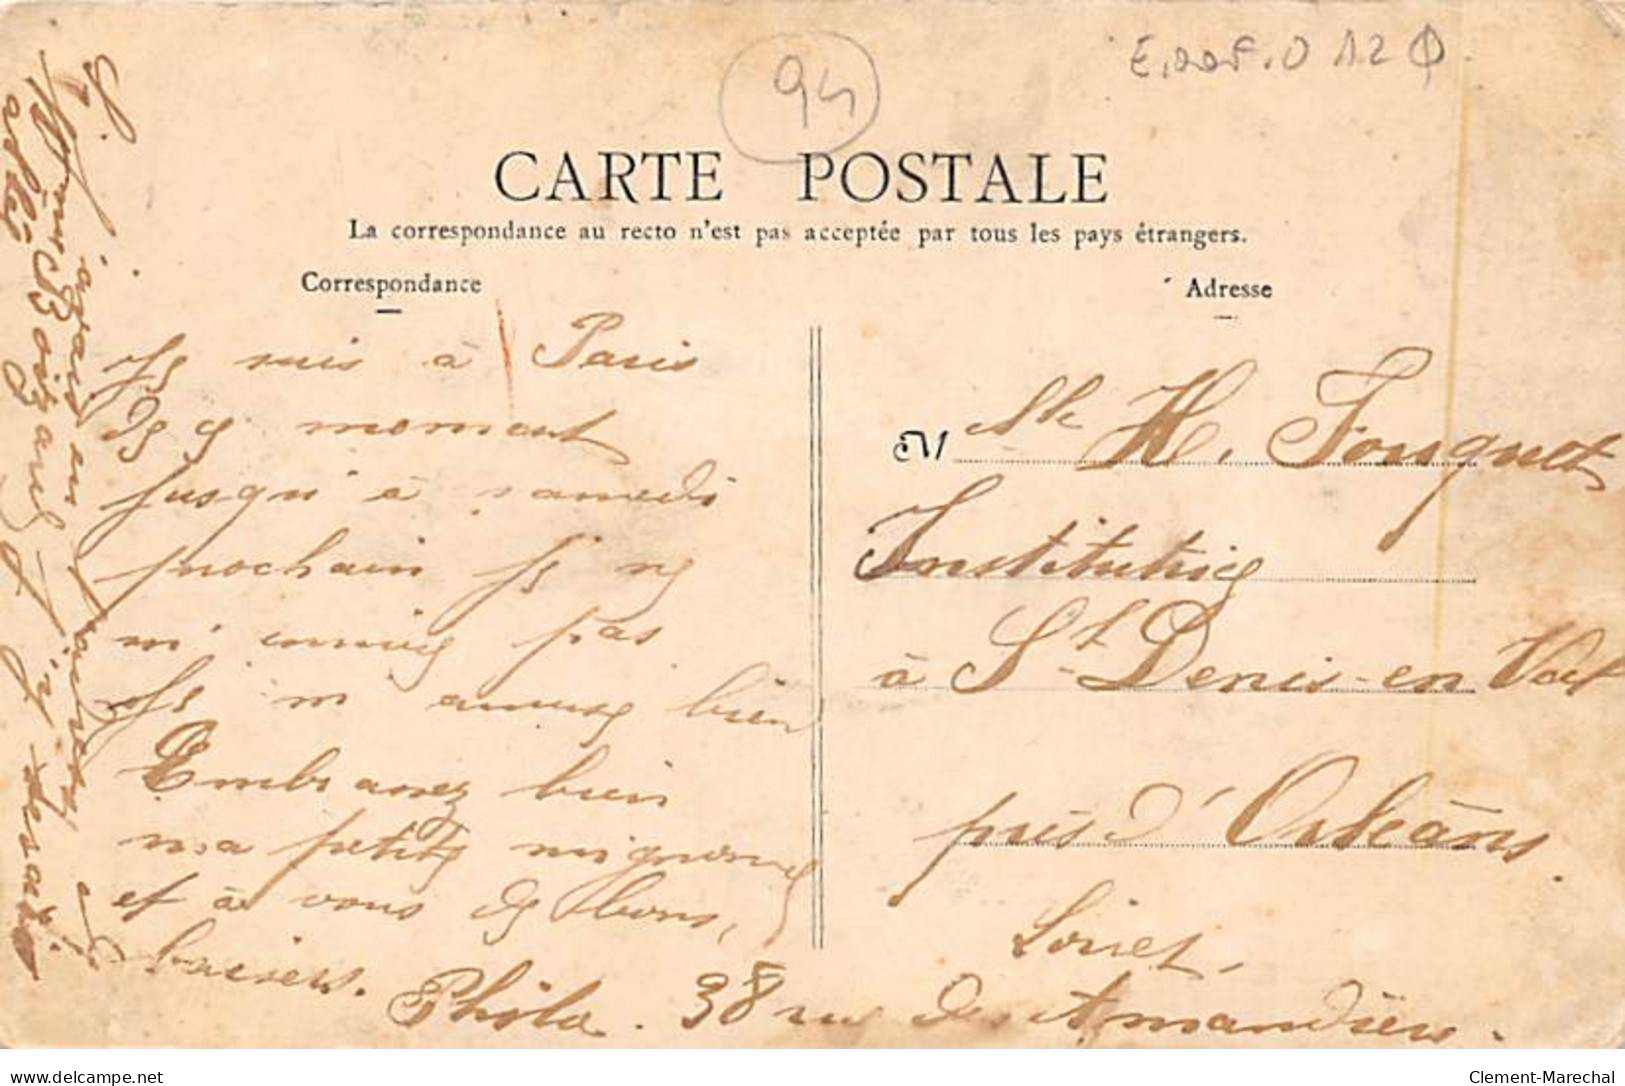 94
CARTE POSTALE
La correspondance au recto n'est pas acceptée par tous les pays étrangers.
Correspondance
Je suis à Paris
de ce moment
jusqu'à samedi
prochain je ne
m'ennuie pas
Je m'amuse bien
Embrassez bien
ma petite mignonne
et à vous de bons
baisers. Phila. 38 rue des Amandiers.
Si j'avais en
Mme Boizard
Adresse
M Mlle H. Fouquet
Institutrice
à St Denis-en Val
près d'Orléans.
Loiret.
Clement-Marechal